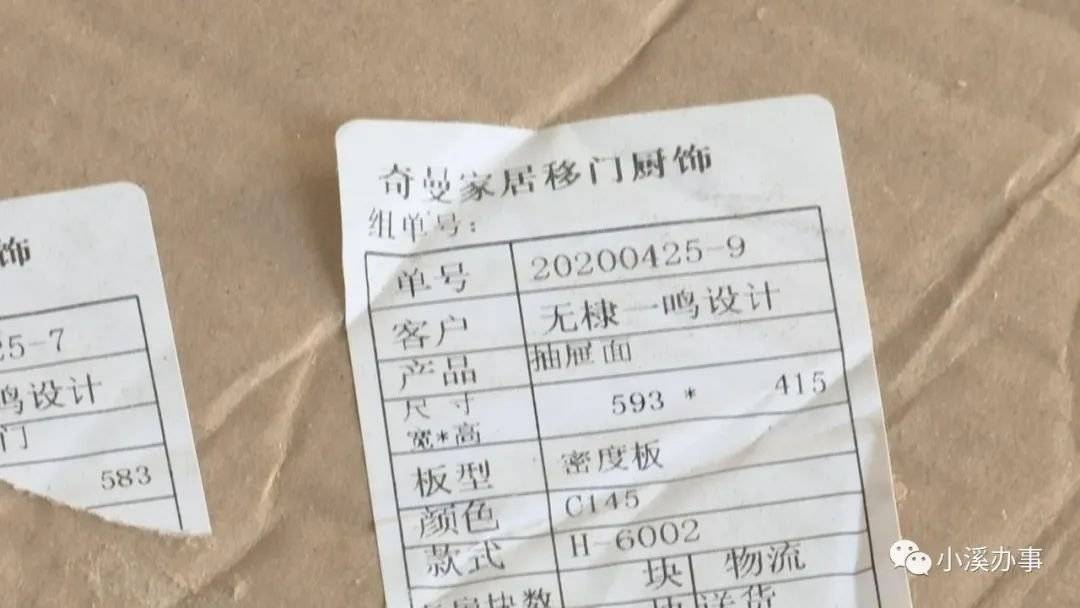 奇曼家居移门厨饰
组单号：
单号 20200425-9
客户 无棣一鸣设计
产品 抽屉面
尺寸
宽*高 593 * 415
板型 密度板
颜色 C145
款式 H-6002
块数 块 物流
送货
饰
25-7
鸣设计
门
583
小溪办事